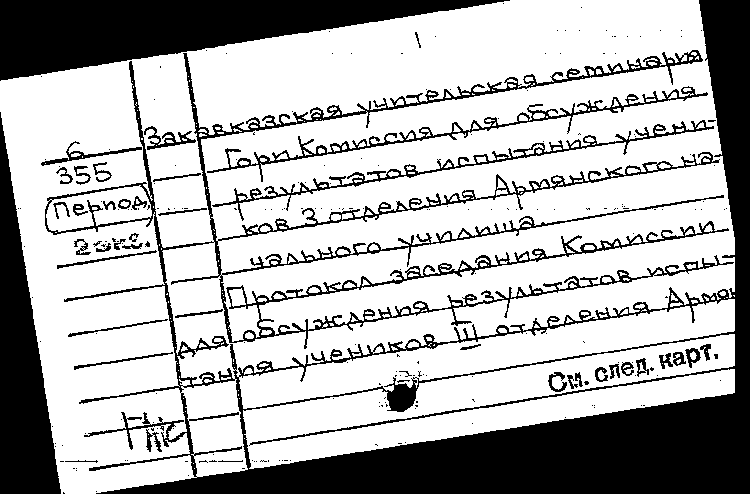 1
6
355
(Период.)
2 экз.
Закавказская учительская семинария,
Гори. Комиссия для обсуждения
результатов испытания учени-
ков 3 отделения Армянского на-
чального училища.
Протокол заседания Комиссии
для обсуждения результатов испы-
тания учеников III отделения Армян
См. след. карт.